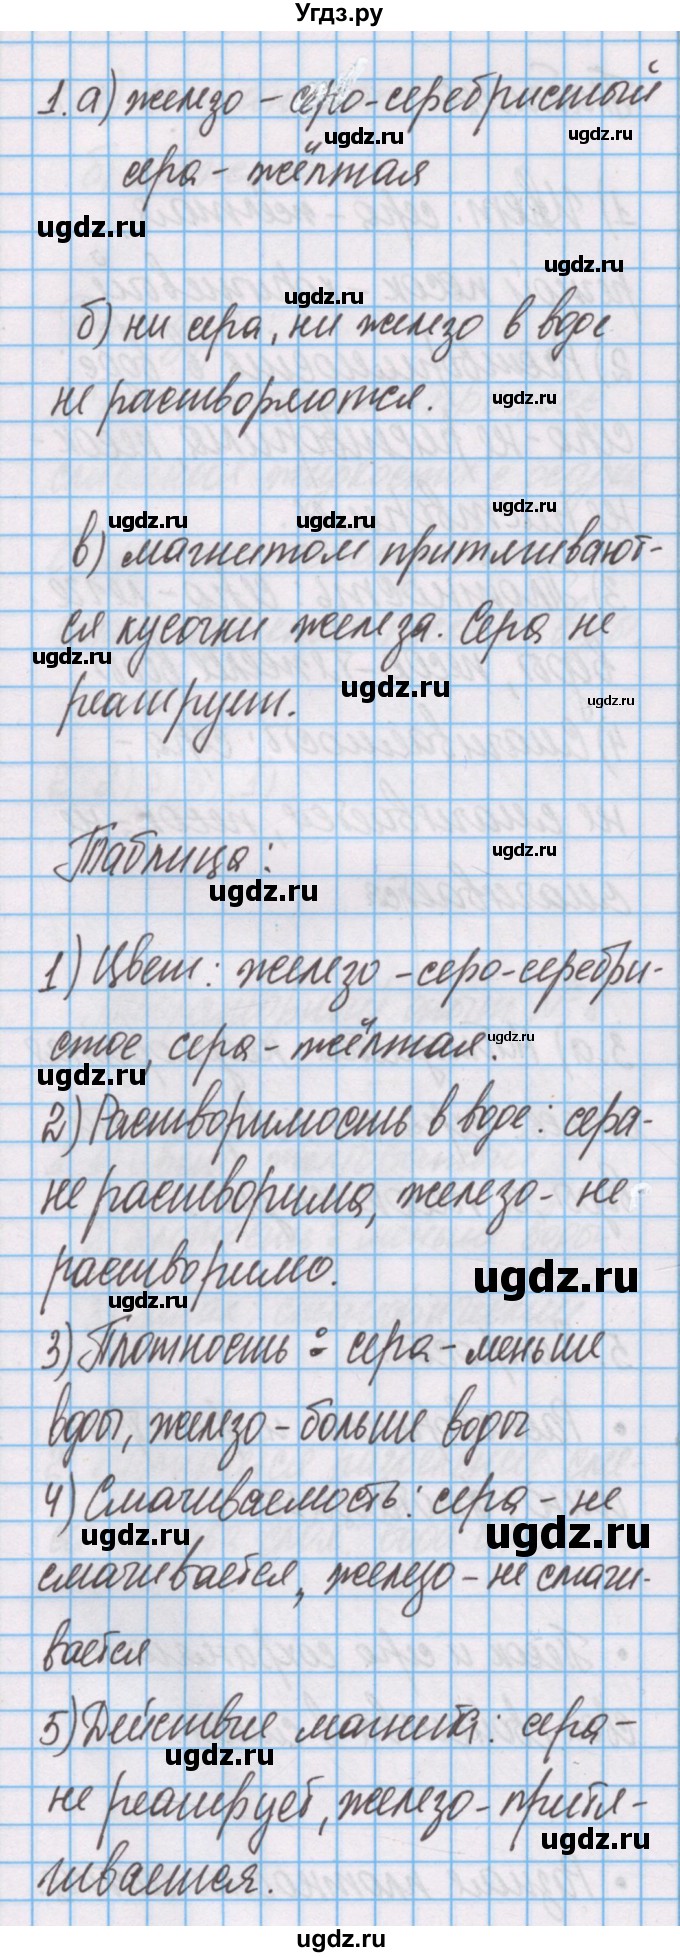 Угдз.ру
1. а) железо - серо-серебристый
ugdz.ru ugdz.ru
сера - жёлтая
ugdz.ru
ugdz.ru
ugdz.ru
б) ни сера, ни железо в воде
не растворяются. ugdz.ru
ugdz.ru
ugdz.ru ugdz.ru
в) магнитом притягивают-
ся кусочки железа. Сера не
ugdz.ru
ugdz.ru ugdz.ru
реагирует.
Таблица:
ugdz.ru
ugdz.ru
1) Цвет: железо - серо-серебри-
стое, сера - жёлтая. ugdz.ru
ugdz.ru
2) Растворимость в воде: сера-
не растворима, железо - не
растворимо. ugdz.ru
ugdz.ru
3) Плотность: сера - меньше
воды, железо - больше воды
4) Смачиваемость: сера - не
ugdz.ru ugdz.ru
смачивается, железо - не смачи-
вается
5) Действие магнита: сера -
ugdz.ru
не реагирует, железо - притя-
ugdz.ru
гивается.
ugdz.ru